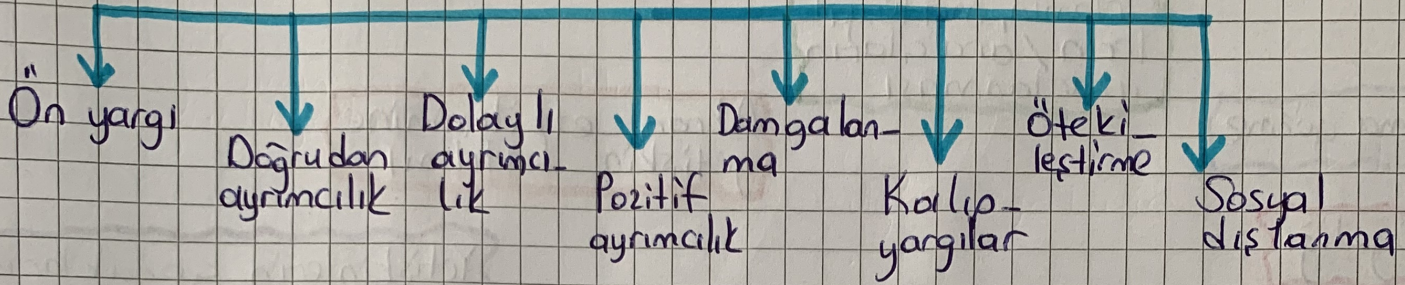 Ön yargı
Doğrudan
ayrımcılık
Dolaylı
ayrımcı-
lık
Pozitif
ayrımcılık
Damgalan-
ma
Kalıp-
yargılar
Öteki-
leştirme
Sosyal
dışlanma